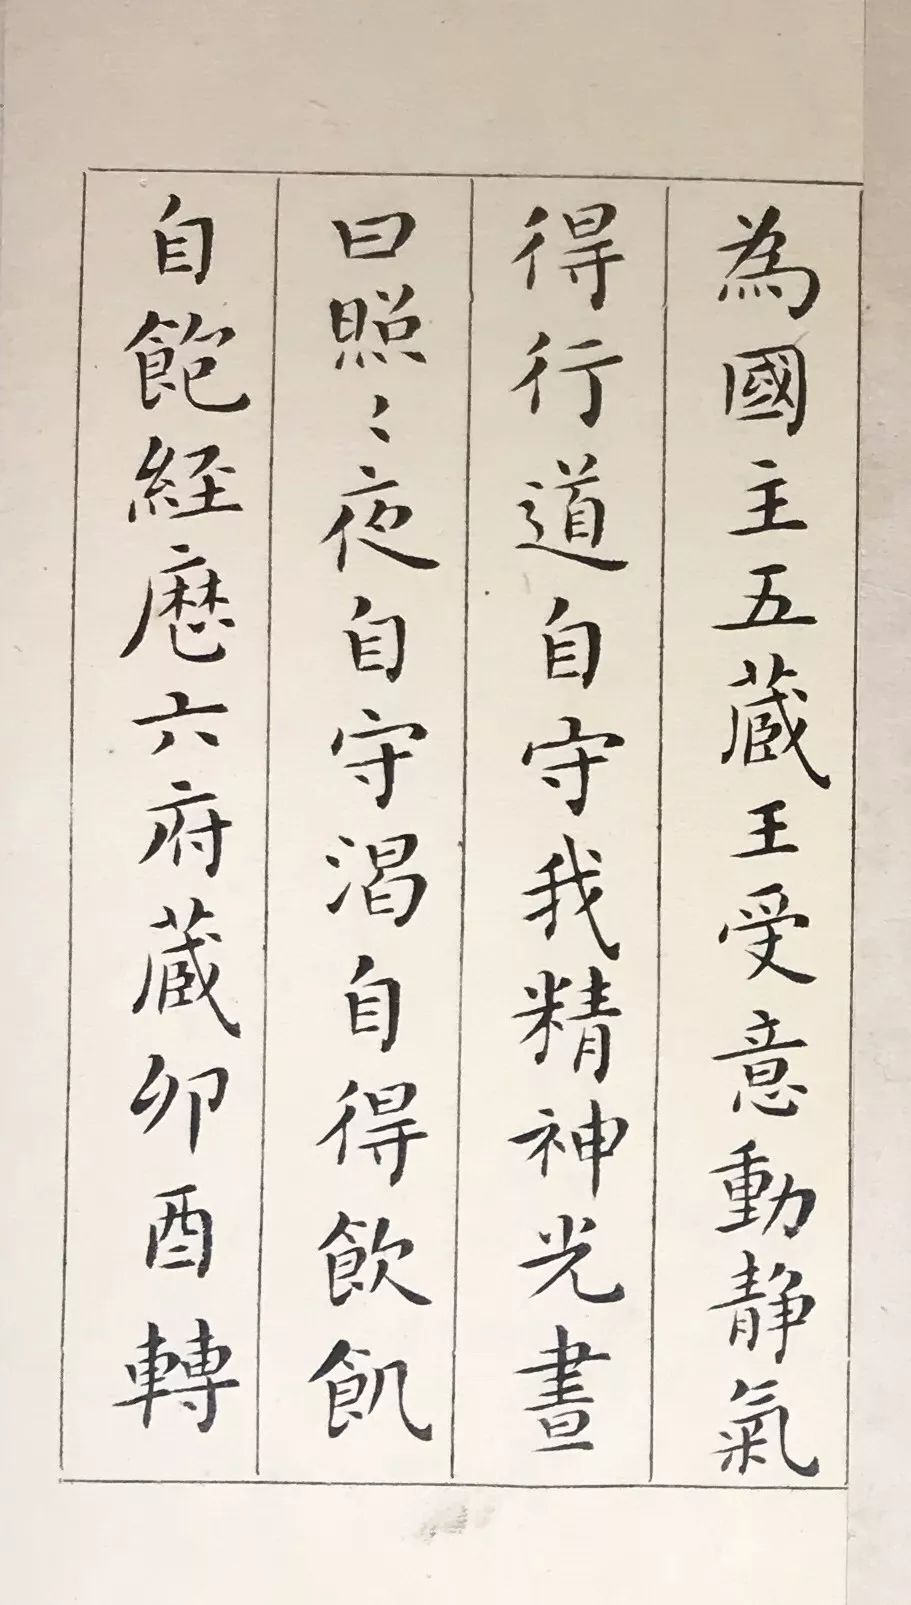 為國主五蔵王受意動靜氣
得行道自守我精神光晝
日照〻夜自守渴自得飲飢
自飽経歴六府蔵卯酉轉